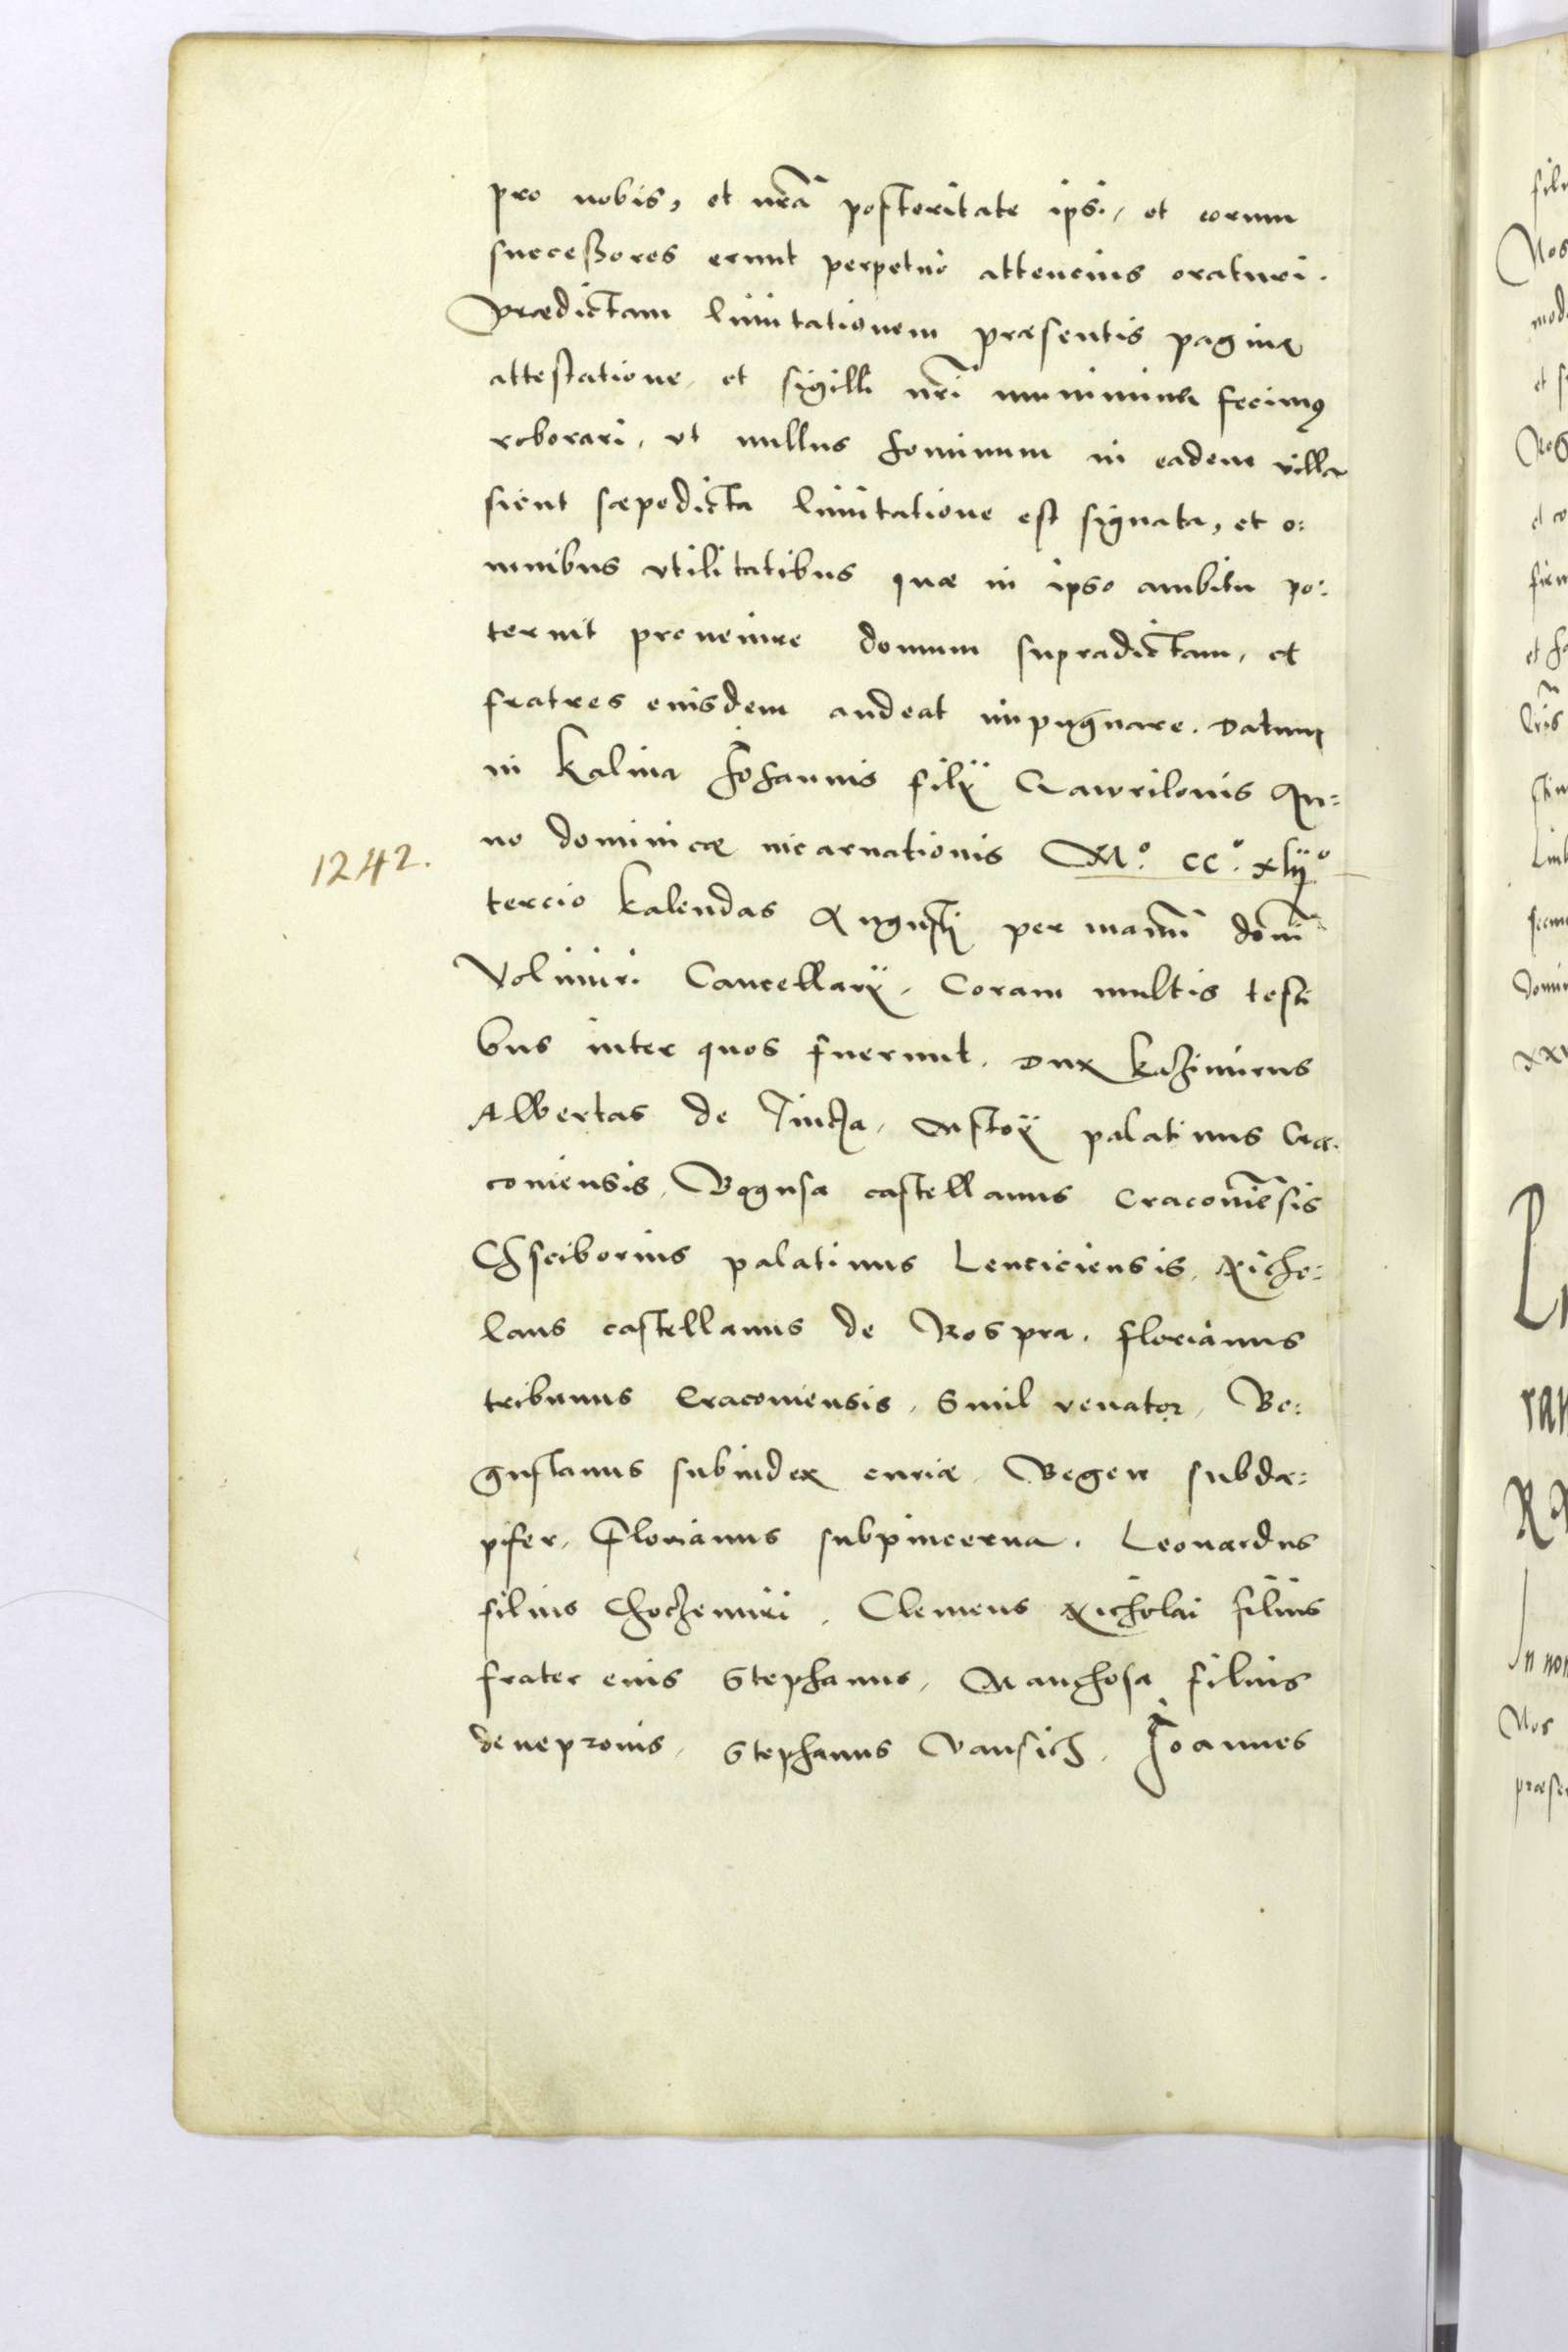 pro nobis, et nr̃a posteritate ipsi, et eorum
successores erunt perpetuo attencius oraturi.
Prædictam limitationem præsentis paginæ
attestatione, et sigilli nr̃i munimine fecimꝰ
roborari, ut nullus hominum in eadem villa
sicut sæpedicta limitatione est signata, et o:
mnibus utilitatibus quæ in ipso ambitu po:
terunt provenire domum supradictam, et
fratres eiusdem audeat impugnare. Datum
in Kalina Johannis filij Gawrilonis An=
no dominicæ incarnationis M.º CC.º xlijº
1242.
tercio Kalendas Augusti per manũ domĩ
Volimiri Cancellarij, Coram multis testi
bus inter quos fuerunt, Dux Kazimirus
Albertas de palatinus Cra.
coviensis, Bogusa castellanus Cracoviẽsis
Chsciborius palatinus Lenciciensis, Nicho:
laus castellanus de Rospra. Florianus
tribunus Cracoviensis, Smil venator, Bo:
gustanus subiudex curiæ, Begen subda:
pifer, Florianus subpincerna. Leonardus
filius Choczemiri, Clemens Nicholai filius
frater eius Stephanus, Manchosa filius
denepronis, Stephanus Vansich, Joannes